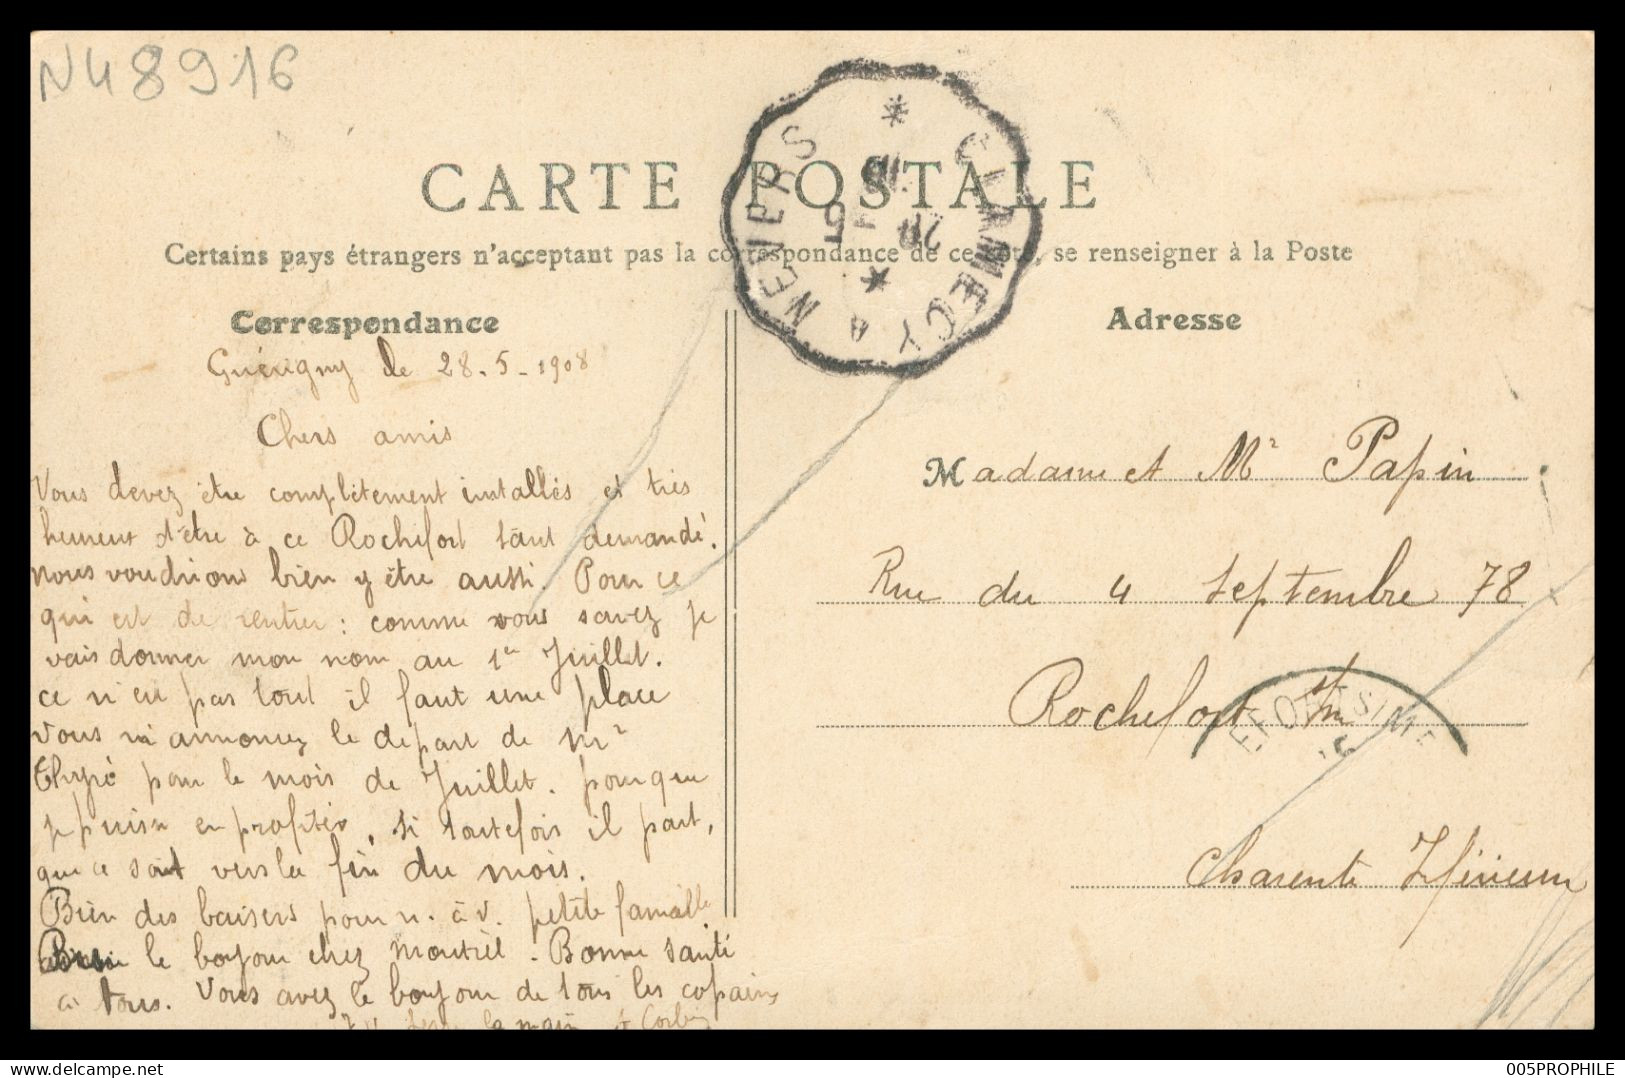 N48916
CARTE POSTALE
Certains pays étrangers n'acceptant pas la correspondance de ce côté, se renseigner à la Poste
CLAMECY A NEVERS
20
5
Correspondance
Adresse
Guérigny le 28-5-1908
Chers amis
Vous devez être complètement installés et très
heureux d'être à ce Rochefort tant demandé.
nous voudrions bien y être aussi. Pour ce
qui est de rentrer : comme vous savez je
vais donner mon nom au 1er Juillet.
ce n'en pas tout il faut une place
Vous m'annoncez le départ de Mr
pour le mois de Juillet. pourque
je puisse en profiter, si toutefois il part,
que ce soit vers la fin du mois.
Bien des baisers pour n. à v. petite famille
le bonjour chez Montriel. Bonne santé
à tous. Vous avez le bonjour de tous les copains
la main
Madame et Mr Papin
Rue du 4 Septembre 78
Rochefort s/m
EFORT S ME
Charente Inférieure
005PROPHILE
delcampe.net